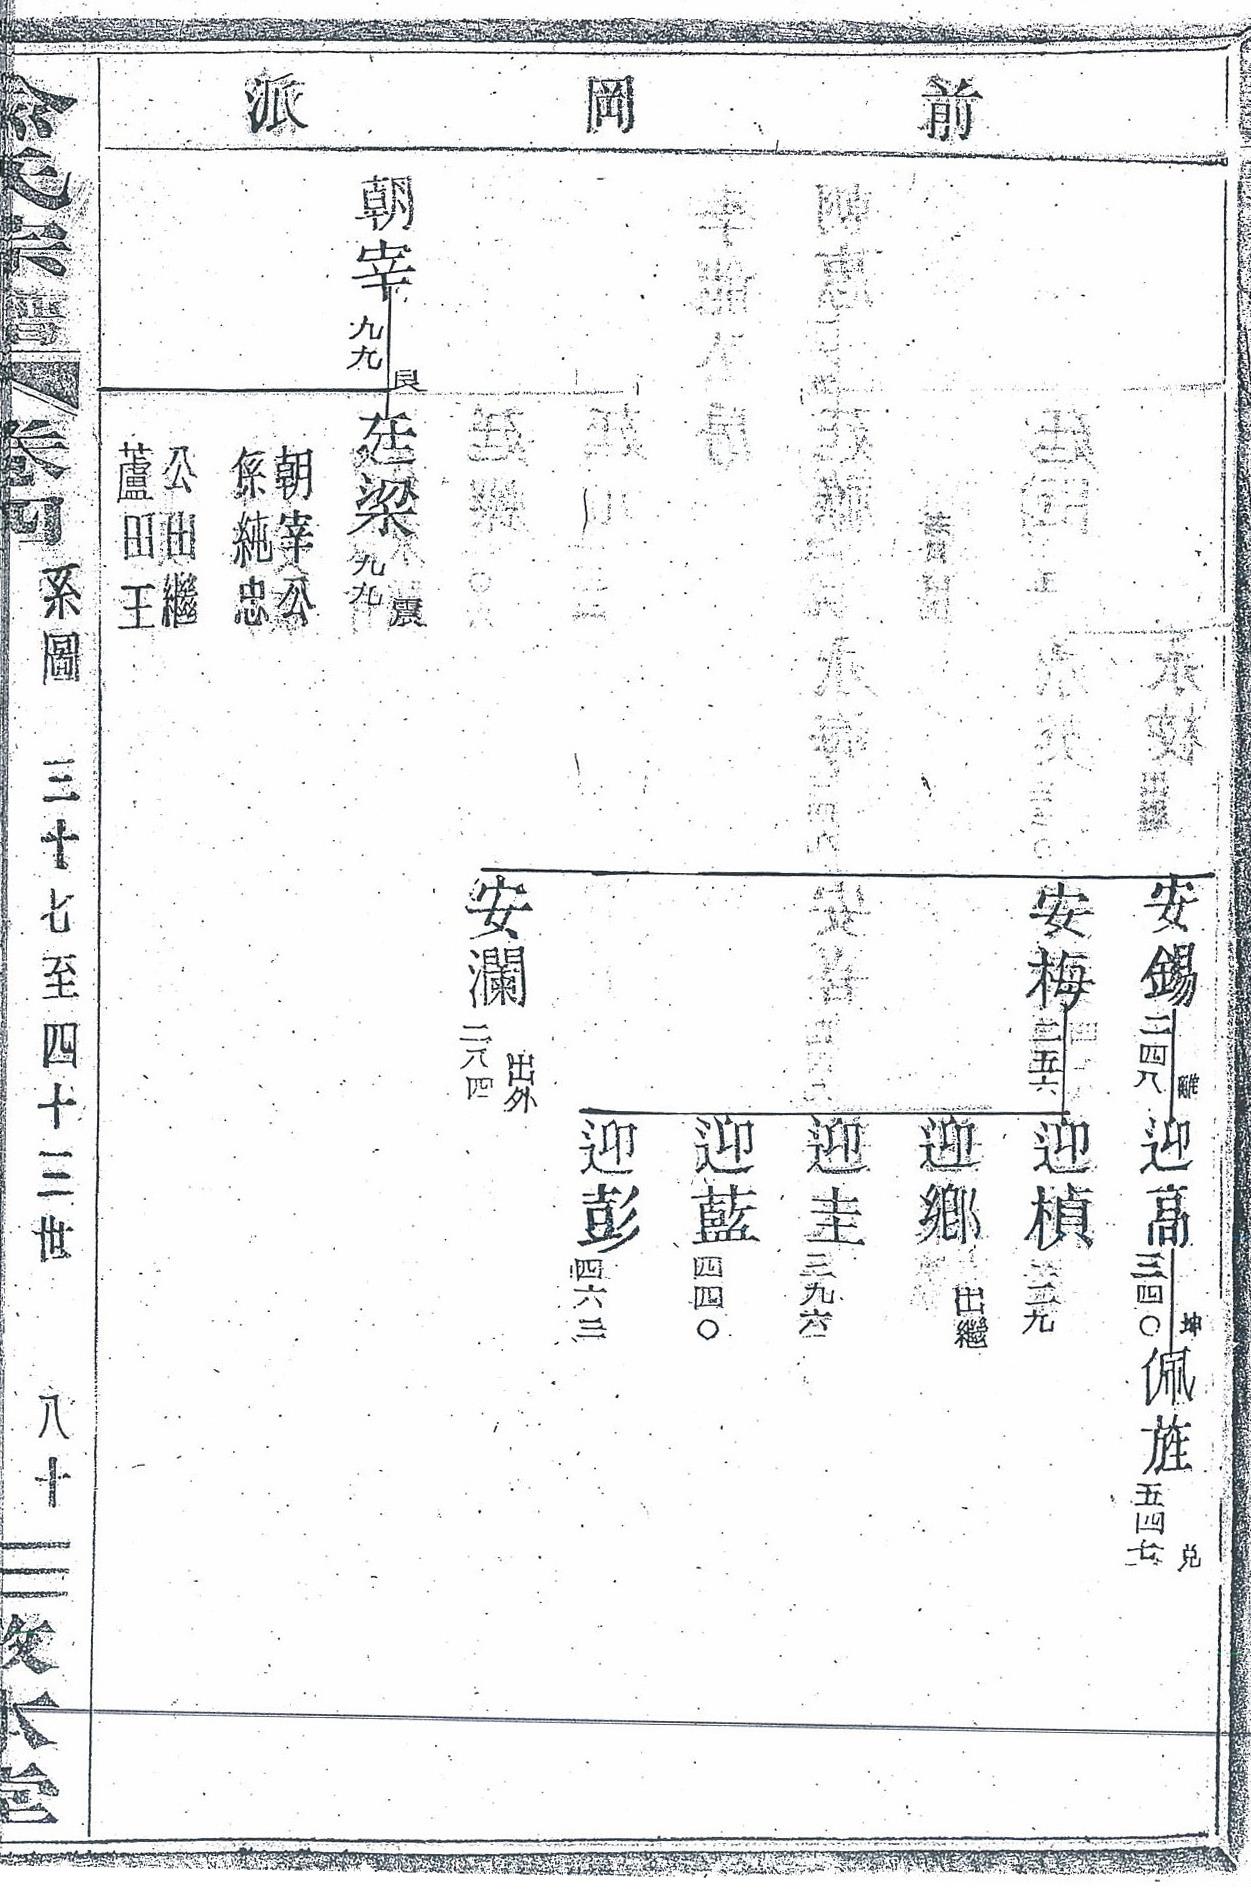 前岡派
安錫 二四八 離
迎高 三四〇 坤
佩旌 五四七 兌
安梅 二五六
迎楨
迎鄉 出繼
迎圭 三九六
迎藍 四四〇
迎彭 四六三
安瀾 二八四 出外
朝宰 九九 艮
廷梁 九九 震
朝宰公
係純忠
公出繼
蘆田王
氏宗譜 卷四 系圖 三十七至四十二世 八十三 敦本堂